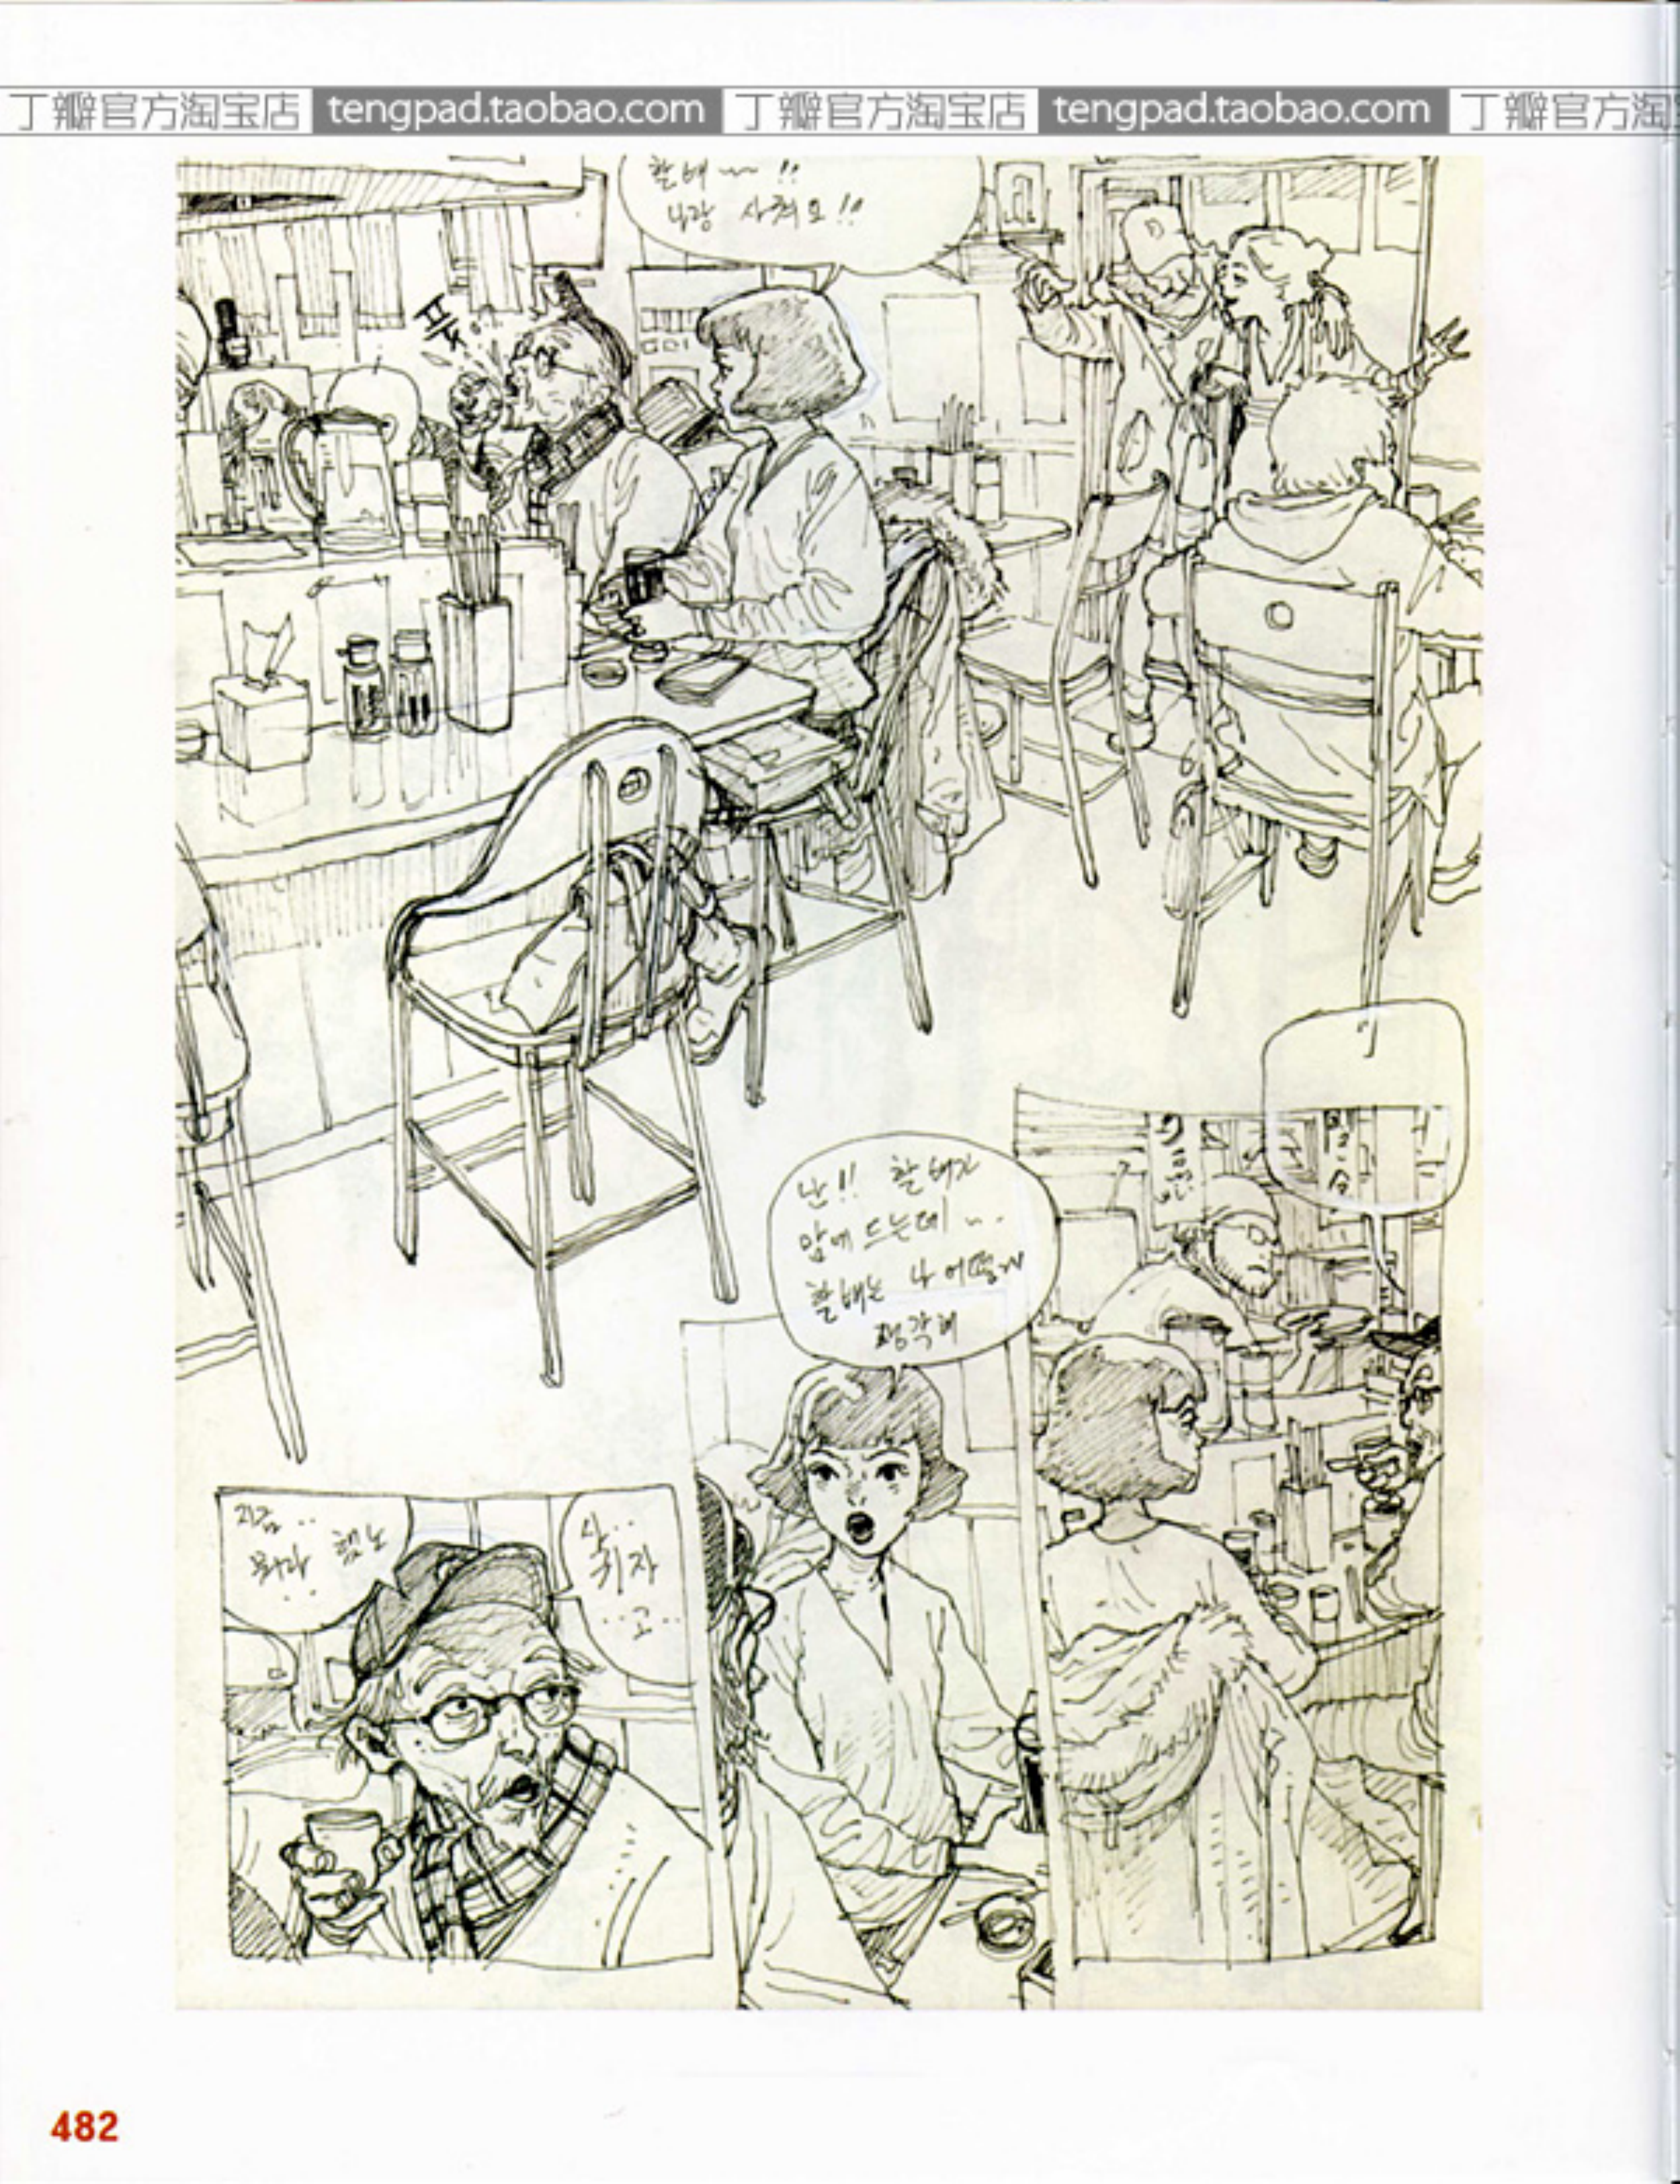 丁瓣官方淘宝店 tengpad.taobao.com 丁瓣官方淘宝店 tengpad.taobao.com 丁瓣官方淘
할배~~ !!
나랑 사겨요!!
푹
난!! 할배가
맘에 드는데~.
할배는 나 어떻게
생각해
지금..
뭐라 했노
사..
귀자
...고...
482